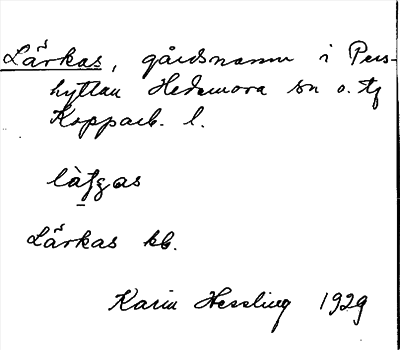 Lärkas, gårdsnamn i Pers-
hyttan Hedemora sn o. tg
Kopparb. l.
Lärkas kb.
Karin Hessling 1929